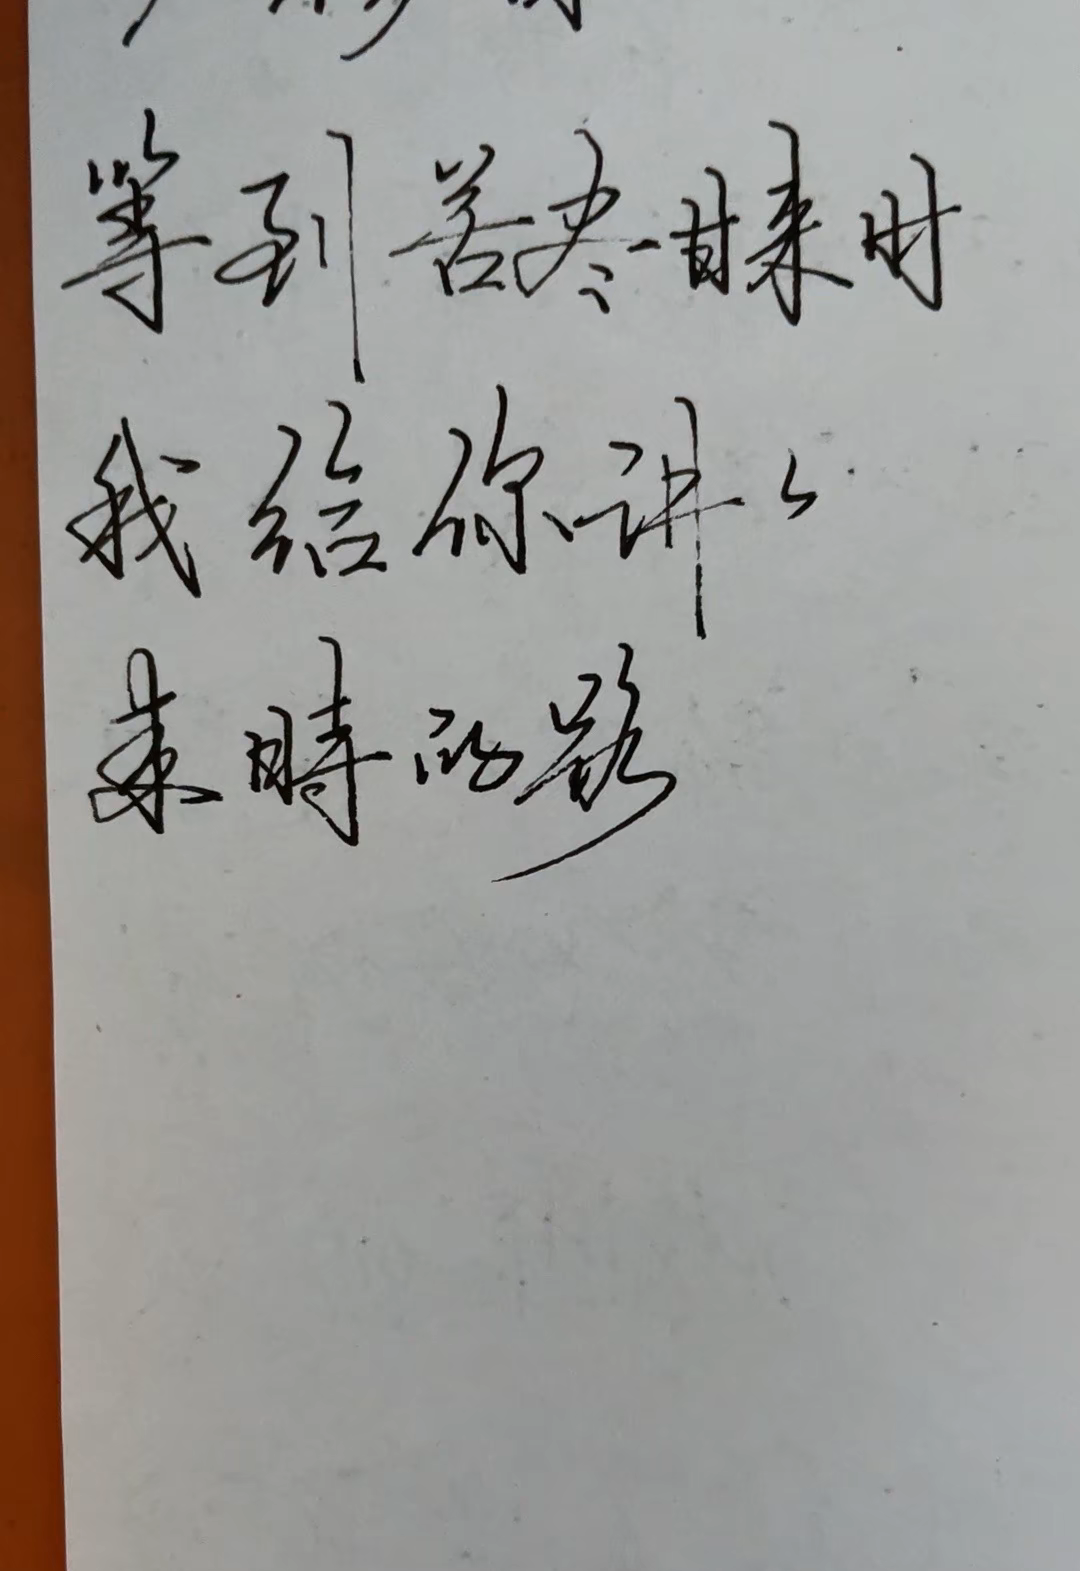 等到苦尽甘来时
我给你讲讲
来時的路